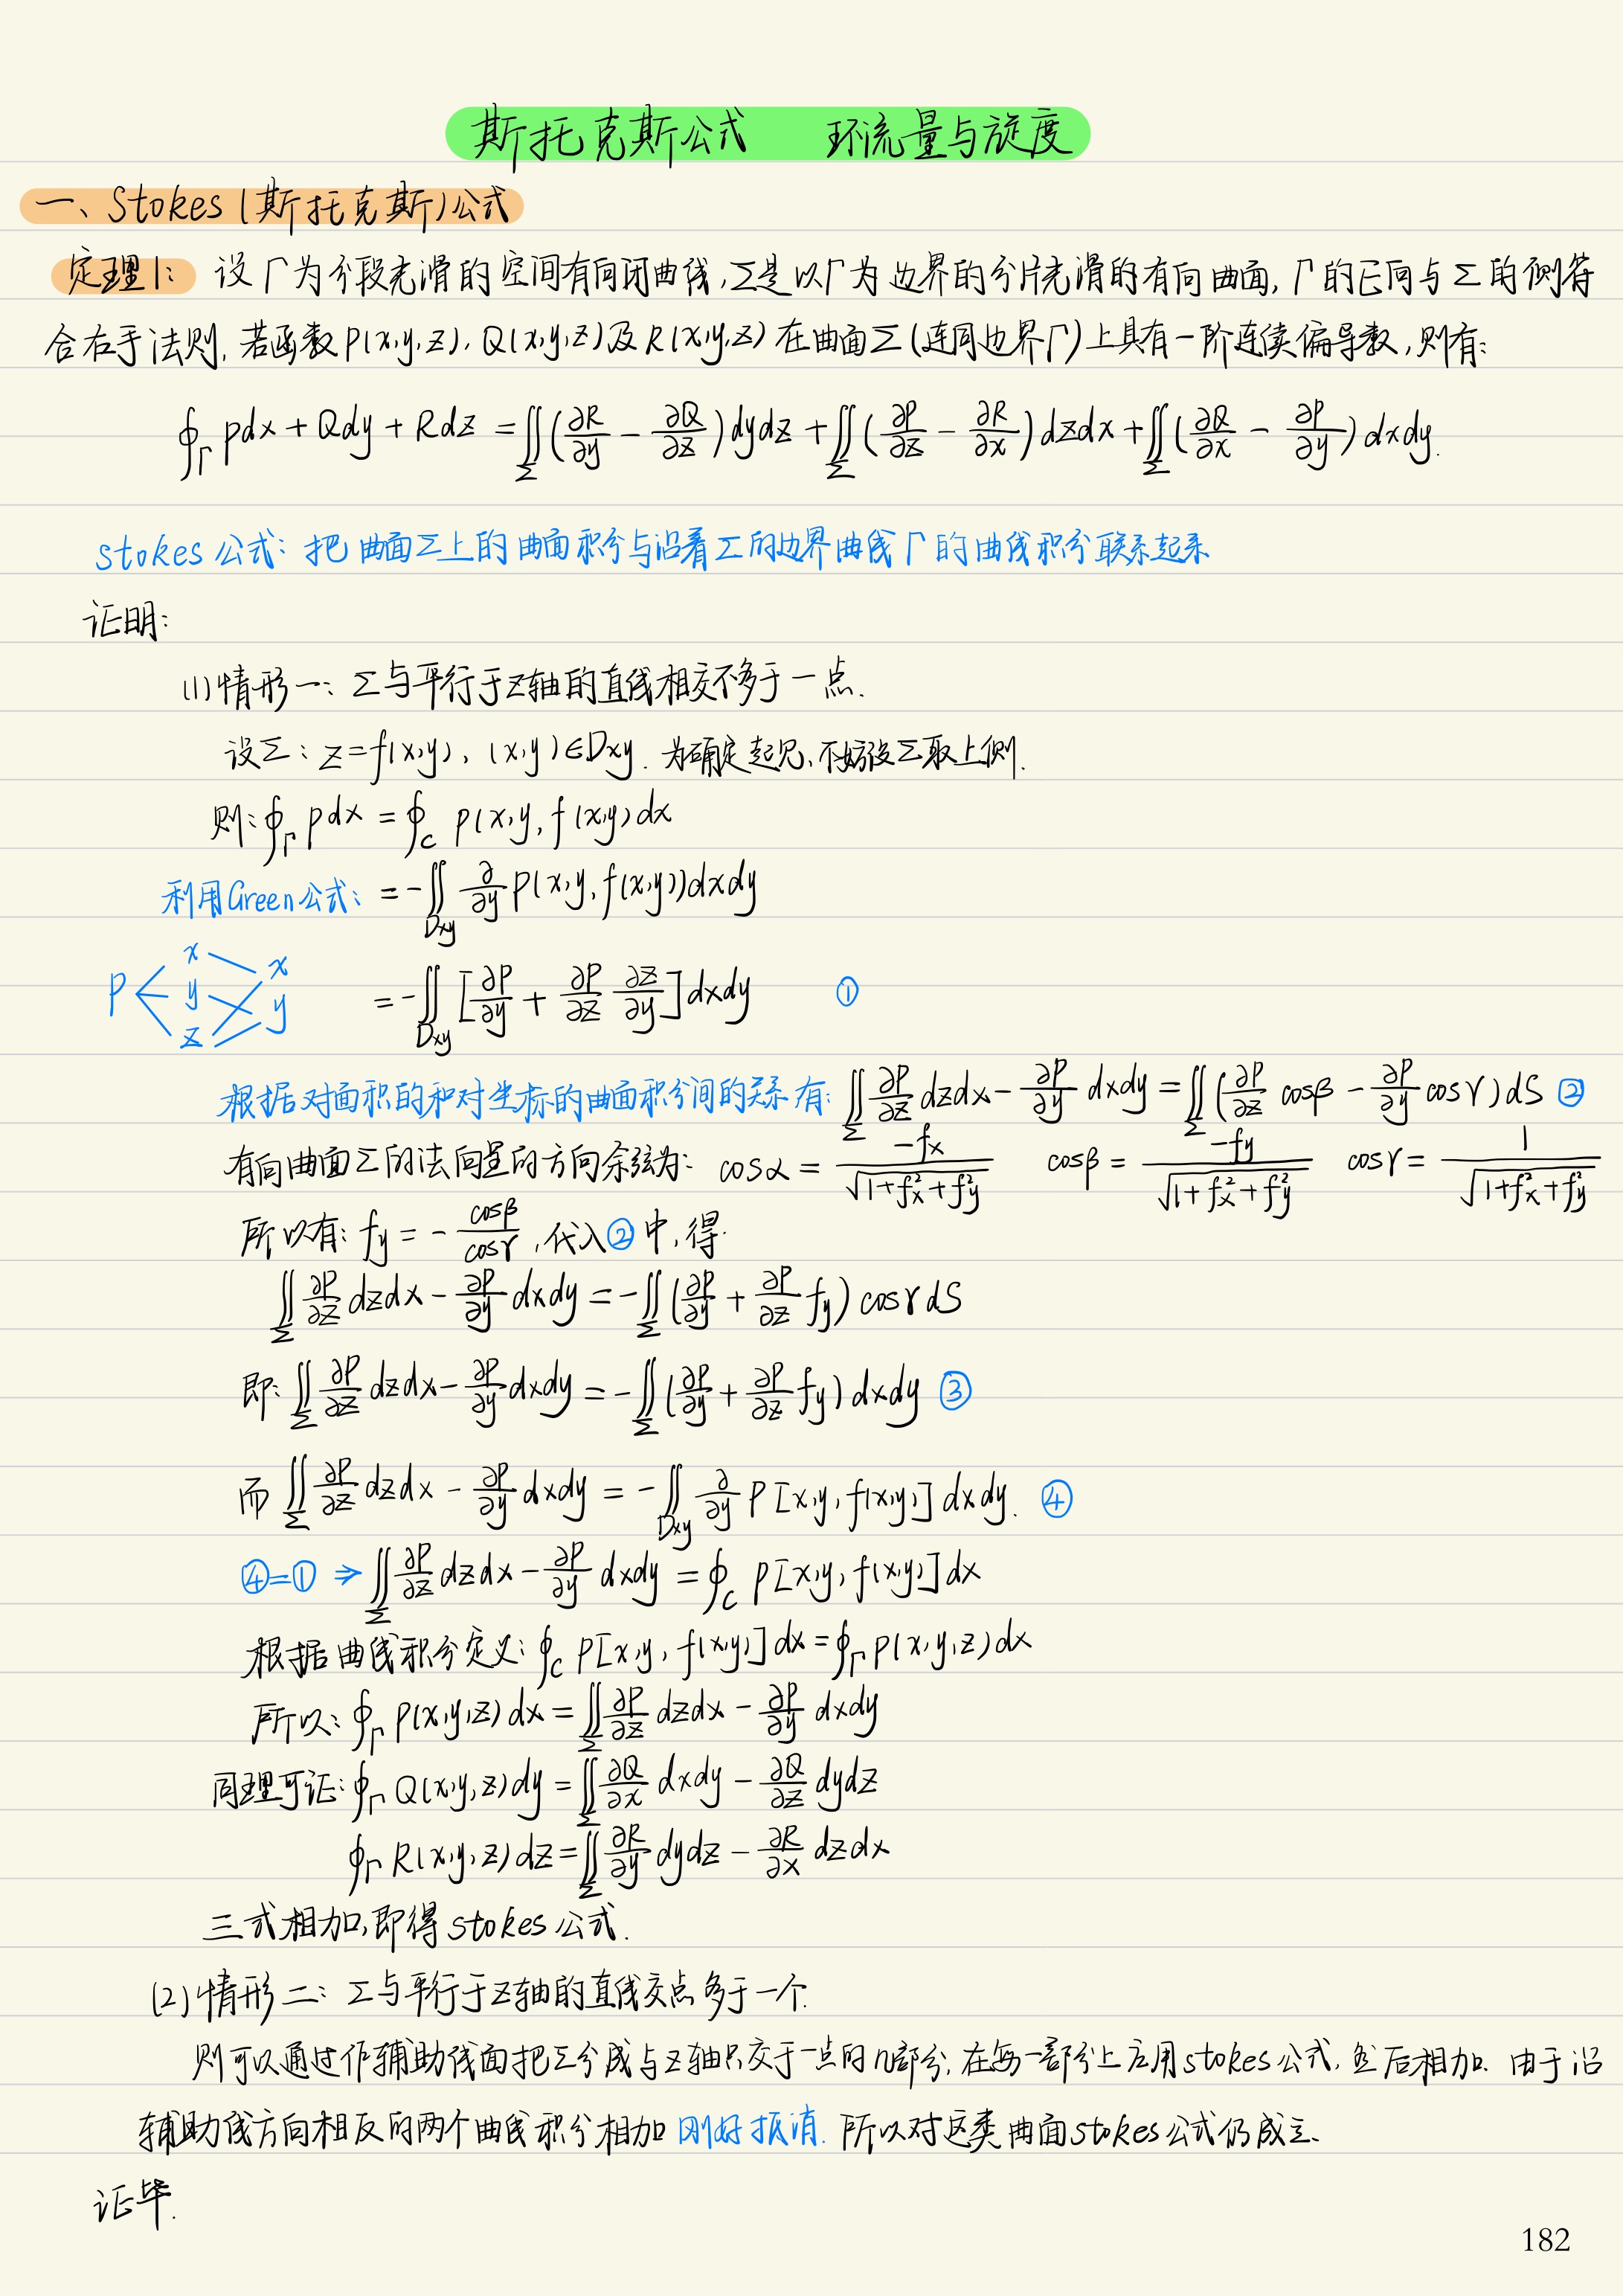 斯托克斯公式 环流量与旋度
一、Stokes(斯托克斯)公式
定理1: 设Γ为分段光滑的空间有向闭曲线,Σ是以Γ为边界的分片光滑的有向曲面,Γ的正向与Σ的侧符
合右手法则,若函数P(x,y,z),Q(x,y,z)及R(x,y,z)在曲面Σ(连同边界Γ)上具有一阶连续偏导数,则有:
∮_Γ Pdx + Qdy + Rdz = ∬_Σ (∂R/∂y - ∂Q/∂z)dydz + ∬_Σ (∂P/∂z - ∂R/∂x)dzdx + ∬_Σ (∂Q/∂x - ∂P/∂y)dxdy.
stokes公式: 把曲面Σ上的曲面积分与沿着Σ的边界曲线Γ的曲线积分联系起来
证明:
(1)情形一: Σ与平行于z轴的直线相交不多于一点.
设Σ: z=f(x,y), (x,y)∈Dxy. 为确定起见,不妨设Σ取上侧.
则:∮_Γ Pdx = ∮_C P(x,y,f(x,y)dx
利用Green公式: = -∬_Dxy ∂/∂y P(x,y,f(x,y))dxdy
P < x y z x y = -∬_Dxy [∂P/∂y + ∂P/∂z ∂z/∂y]dxdy ①
根据对面积的和对坐标的曲面积分间的关系有: ∬_Σ ∂P/∂z dzdx - ∂P/∂y dxdy = ∬_Σ (∂P/∂z cosβ - ∂P/∂y cosγ)dS ②
有向曲面Σ的法向量的方向余弦为: cosα = -fx/√(1+fx²+fy²) cosβ = -fy/√(1+fx²+fy²) cosγ = 1/√(1+fx²+fy²)
所以有: fy = -cosβ/cosγ ,代入②中,得.
∬_Σ ∂P/∂z dzdx - ∂P/∂y dxdy = -∬_Σ (∂P/∂y + ∂P/∂z fy) cosγdS
即: ∬_Σ ∂P/∂z dzdx - ∂P/∂y dxdy = -∬_Σ (∂P/∂y + ∂P/∂z fy)dxdy ③
而 ∬_Σ ∂P/∂z dzdx - ∂P/∂y dxdy = -∬_Dxy ∂/∂y P[x,y,f(x,y)]dxdy. ④
④=① ⇒ ∬_Σ ∂P/∂z dzdx - ∂P/∂y dxdy = ∮_C P[x,y,f(x,y)]dx
根据曲线积分定义: ∮_C P[x,y,f(x,y)]dx = ∮_Γ P(x,y,z)dx
所以: ∮_Γ P(x,y,z)dx = ∬_Σ ∂P/∂z dzdx - ∂P/∂y dxdy
同理可证: ∮_Γ Q(x,y,z)dy = ∬_Σ ∂Q/∂x dxdy - ∂Q/∂z dydz
∮_Γ R(x,y,z)dz = ∬_Σ ∂R/∂y dydz - ∂R/∂x dzdx
三式相加,即得stokes公式.
(2)情形二: Σ与平行于z轴的直线交点多于一个.
则可以通过作辅助线面把Σ分成与z轴只交于一点的n部分,在每一部分上应用stokes公式,然后相加. 由于沿
辅助线方向相反的两个曲线积分相加刚好抵消. 所以对这类曲面stokes公式仍成立.
证毕.
182